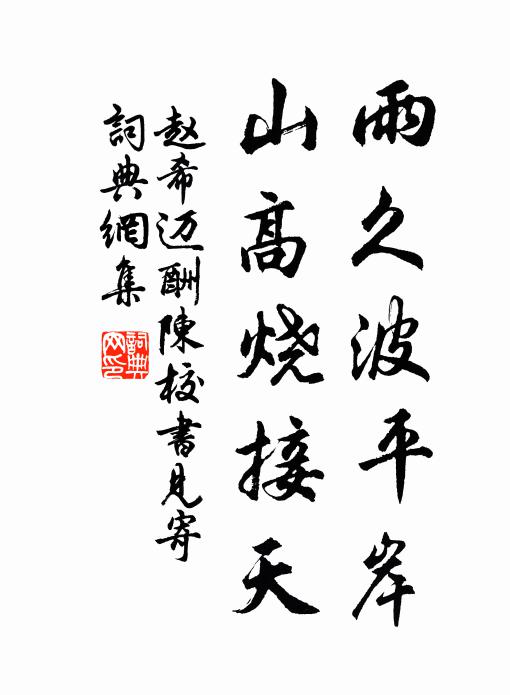 雨久波平岸
山高烧接天
赵希迈酬陳校書見寄
詞典網集
詞典
网印